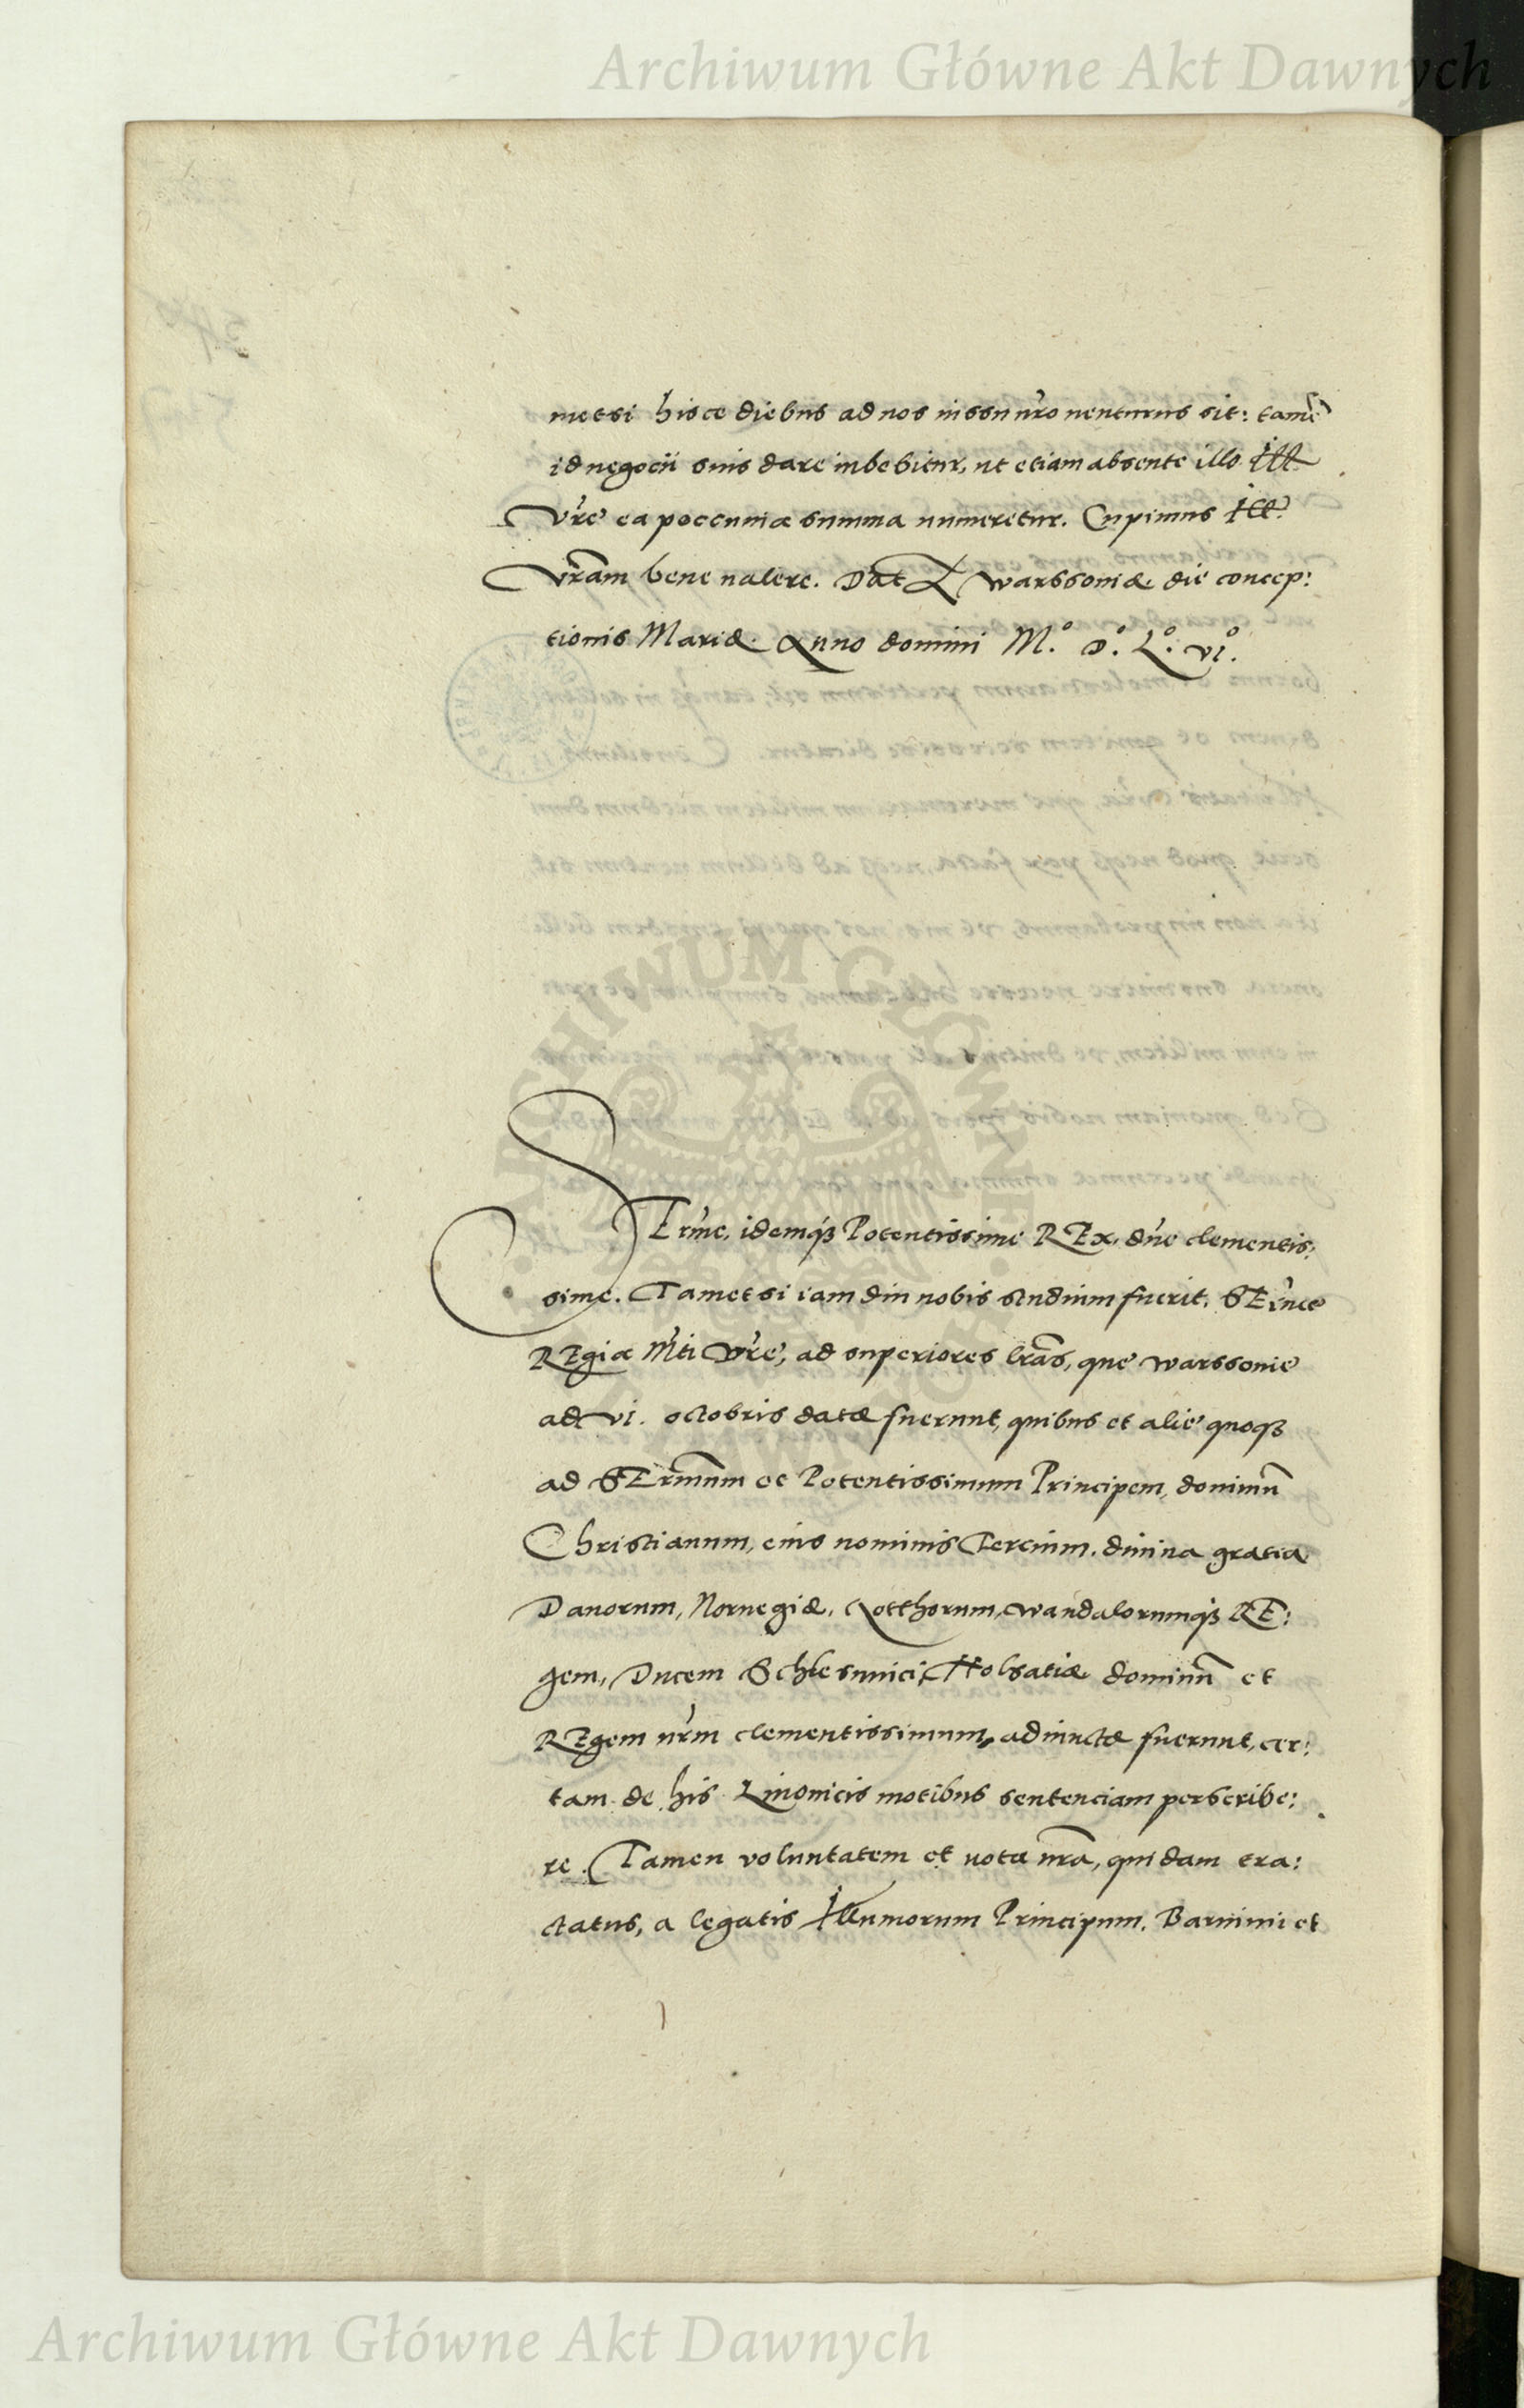 Archiwum Główne Akt Dawnych
metsi hisce diebus ad nos iussu nr̃o uenturus sit: tamẽ
id negocii suis dare iubebitur, ut etiam absente illo Ill.
Vr̃e ea poecuniæ summa numeretur. Cupimus Ill.
Vr̃am bene ualere. Dat Warssoniæ die concep:
tionis Mariæ. Anno domini M.º D.º L.º VI.º
ARCHIWUM GŁÓWNE AKT DAWNYCH
SEr̃me, idemq́ꝫ Potentissime REx, dñe clementis:
sime. Tametsi iam diu nobis studium fuerit, SEr̃me
REgiæ Mt̃i Vr̃e, ad superiores lr̃as, que Warssonie
ad VI. octobris datæ fuerunt, quibus et alie quoqꝫ
ad SEr̃mum et Potentissimum Principem, dominũ
Christianum, eius nominis Tercium, diuina gratia
Danorum, Noruegiæ, Gotthorum, Wandalorumq́ꝫ RE:
gem, Ducem Schlesuuici, Holsatiæ dominũ et
REgem nr̃m clementissimum, adiunctæ fuerunt, cer:
tam de his Liuonicis motibus sentenciam perscribe:
re. Tamen voluntatem et uota nr̃a, quidam tra:
ctatus, a legatis Illumorum Principum, Barnimi et
Archiwum Główne Akt Dawnych